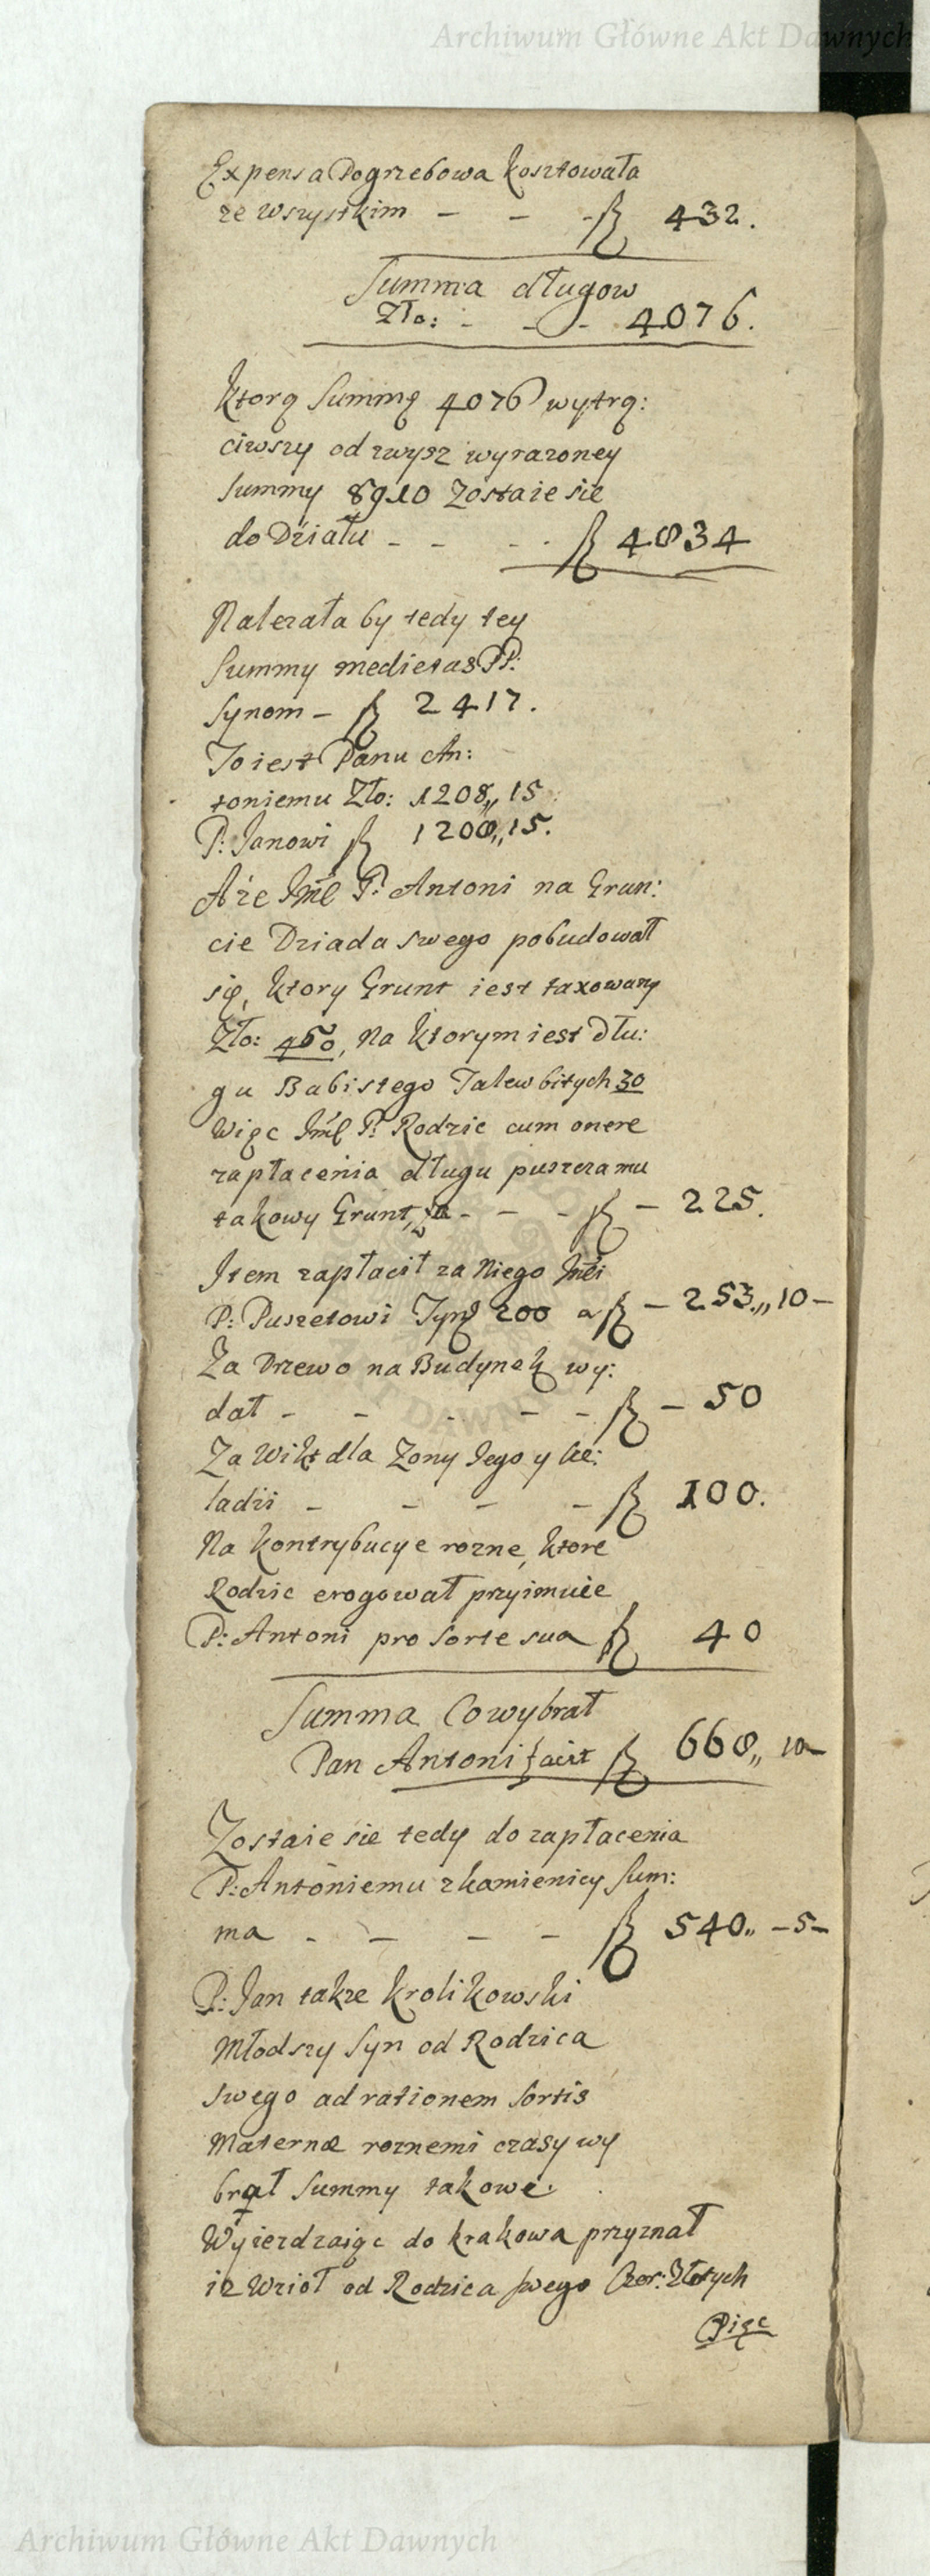 Archiwum Główne Akt Dawnych
Expensa Pogrzebowa kosztowała
ze wszystkim - - - f 432.
Summa długow
Zło: - - - 4076.
Ktorą Summę 4076 wytrą:
ciwszy od zwysz wyrazoney
Summy 8910 Zostaie sie
do Działu - - - - f 4834
Nalezała by tedy tey
Summy medietas PP:
Synom - f 2417.
To iest Panu An:
toniemu Zło: 1208,, 15
P: Janowi f 1208,, 15.
A że Jmć P: Antoni na Grun:
cie Dziada swego pobudował
się, Ktory Grunt iest taxowany
Zło: 450, Na Ktorym iest Dłu:
gu Babistego Talew bitych 30
Więc Jmć P: Rodzic cum onere
zapłacenia długu puszcza mu
takowy Grunt, za - - - f - 225.
Item zapłacił za Niego Jmci
P: Puszetowi Tynf 200 a f - 253,, 10 -
Za Drzewo na Budynek wy:
dał - - - - - f - 50
Za Wikt dla Zony Jego y Cze:
ladzi - - - - f 100.
Na kontrybucye rozne, ktore
Rodzic erogował przyimuie
P: Antoni pro sorte sua f 40
Summa Co wybrał
Pan Antoni facit f 668,, 10
Zostaie sie tedy do zapłacenia
P: Antoniemu z kamienicy Sum:
ma - - - - f 540,, - 5 -
P: Jan takze Krolikowski
Młodszy Syn od Rodzica
swego ad rationem Sortis
Maternæ roznemi czasy wy
brał Summy takowe.
Wyiezdzaiąc do Krakowa przyznał
iz Wzioł od Rodzica swego Czer: Złotych
Pięc
Archiwum Główne Akt Dawnych